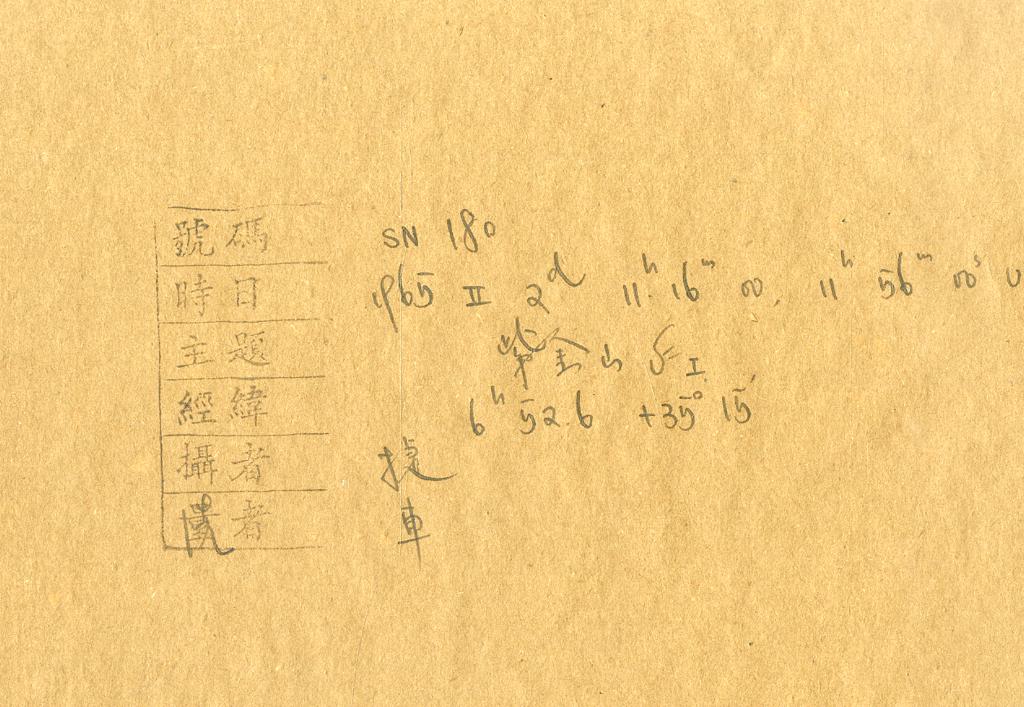 號碼 SN 180
時日 1965 II 2d 11h 16m 00. 11h 56m 00s U
主題 紫金山 I
經緯 6h 52.6 +35° 15'
攝者 捷
者 車